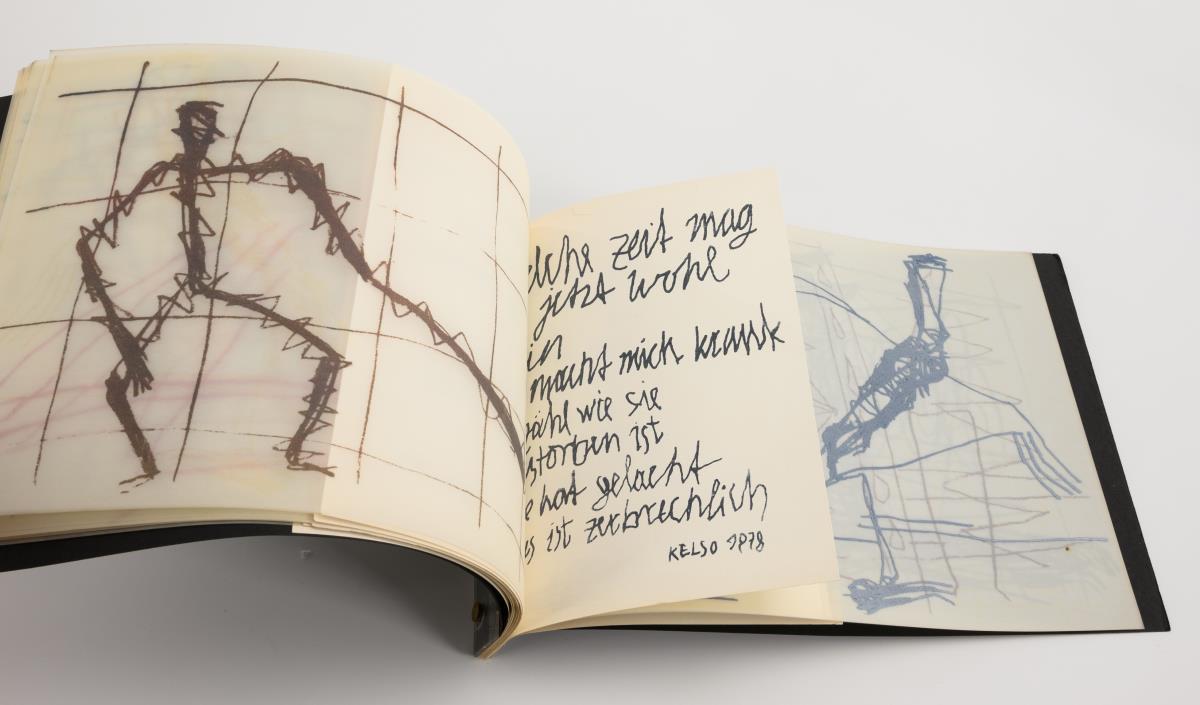 elche zeit mag
jetzt wohl
in
macht mich krank
wie sie
ist
hat gelacht
es ist zerbrechlich
KELSO 1978